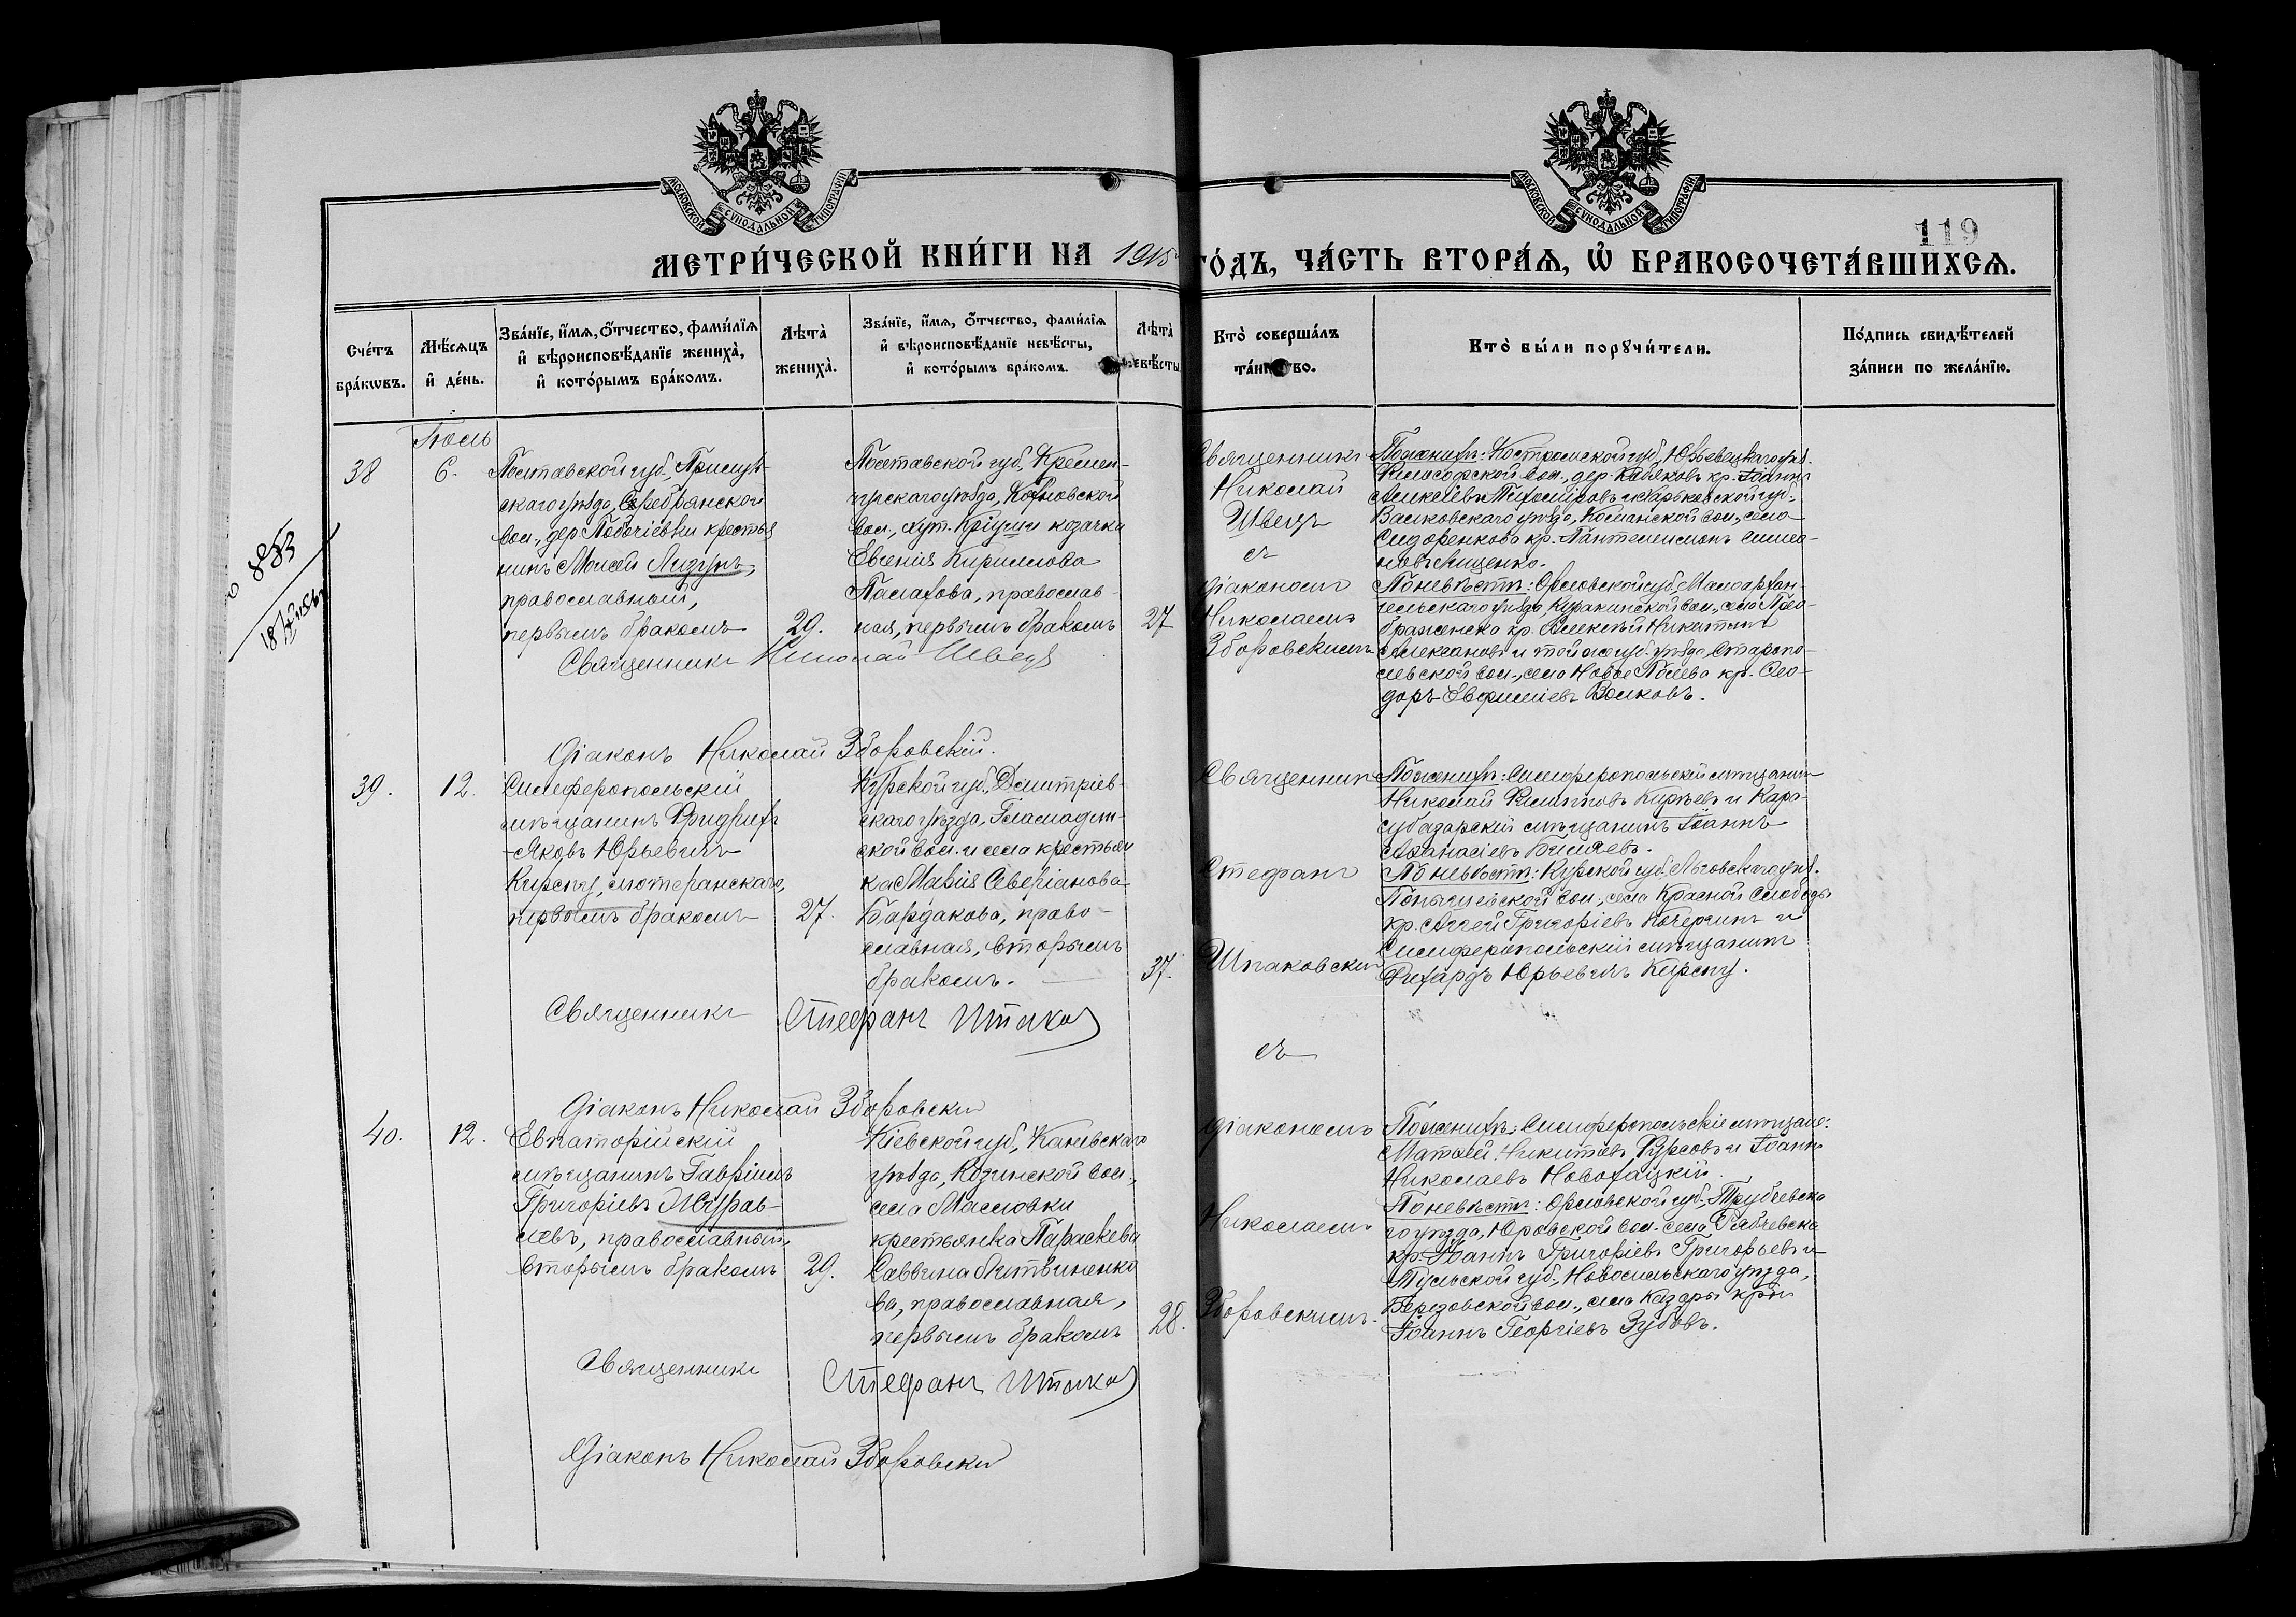 МОСКОВСКОЙ СУНОДАЛЬНОЙ ТИПОГРАФІИ
МОСКОВСКОЙ СУНОДАЛЬНОЙ ТИПОГРАФІИ
119
МЕТРИ́ЧЕСКОЙ КНИ́ГИ НА 1915 ГО́ДЪ, ЧА́СТЬ ВТОРА́Ѧ, Ѡ҆ БРАКОСОЧЕТА́ВШИХСѦ.
Сче́тъ бра́кωвъ.
Мѣ́сѧцъ и҆ де́нь.
Зва́нїе, и҆́мѧ, ѻ҆́тчество, фами́лїѧ и҆ вѣроисповѣ́данїе жениха̀, и҆ кото́рымъ бра́комъ.
Лѣта̀ жениха̀.
Зва́нїе, и҆́мѧ, ѻ҆́тчество, фами́лїѧ и҆ вѣроисповѣ́данїе невѣ́сты, и҆ кото́рымъ бра́комъ.
Лѣта̀ невѣ́сты
Кто̀ соверша́лъ та́инство.
Кто̀ бы́ли порꙋчи́тели.
По́дпись свидѣ́телей за́писи по жела́нїю.
883
Іюль
38
6.
Полтавской губ., Прилук-
скаго уѣзда, Серебрянской
вол., дер. Побочіевки крестья
нинъ Моисей Лидунъ,
православный,
первымъ бракомъ
29.
Полтавской губ., Кремен-
чугскаго уѣзда,
вол., хут. Кріуши козачка
Евгенія Кириллова
Палахова, православ-
ная, первымъ бракомъ
27
Священникъ
Николай
Швецъ
съ
діакономъ
Николаемъ
Зборовскимъ
По женихѣ: Костромской губ., Юрьевецкаго уѣз.
Философской вол., дер. кр. Іоаннъ
Алексѣевъ Тихоміровъ и Харьковской губ.,
Валковскаго уѣзда, вол., села
Сидоренкова кр. Пантелеимонъ Симео-
новъ Лищенко.
По невѣстѣ: Орловской губ., Малоархан-
гельскаго уѣзда, Куракинской вол., села Прео-
браженска кр. Алексѣй Никитинъ
и той же губ. уѣзда, Старопо-
левской вол., села Новое Полева кр. Ѳео-
доръ Евфиміевъ Волковъ.
Священникъ Николай Швецъ
Діаконъ Николай Зборовскій.
39.
12.
Симферопольскій
мѣщанинъ Фридрихъ
-Яковъ Юрьевичъ
Кирспу, лютеранскаго,
первымъ бракомъ
27.
Курской губ., Дмитріев-
скаго уѣзда,
ской вол. и села крестьян
ка Марія Северіанова
Бардакова, право-
славная, вторымъ
бракомъ.
37.
Священникъ
Стефанъ
Шпаковскій
съ
діакономъ
Николаемъ
Зборовскимъ.
По женихѣ: Симферопольскій мѣщанинъ
Николай Филипповъ Киреевъ и Кара-
субазарскій мѣщанинъ Іоаннъ
Аѳанасіевъ
По невѣстѣ: Курской губ., Льговскаго уѣз.
вол., села Красной Слободы
кр. Аггей Григоріевъ Кочергинъ и
Симферопольскій мѣщанинъ
Рихардъ Юрьевичъ Кирспу.
Священникъ Стефанъ
Діаконъ Николай Зборовскій
40.
12.
Евпаторійскій
мѣщанинъ Гавріилъ
Григоріевъ Журав-
левъ, православный,
вторымъ бракомъ
29.
Кіевской губ., Каневскаго
уѣзда, Козинской вол.,
села Масловки
крестьянка Параскева
Саввина Литвиненко
ва, православная,
первымъ бракомъ
28.
По женихѣ: Симферопольскіе мѣщане:
Матѳей Никитинъ Фурсовъ и Іоаннъ
Николаевъ Новохацкій.
По невѣстѣ: Орловской губ., Трубчевска
го уѣзда, Юровской вол. села Рябчевска
кр. Іоаннъ Григоріевъ Григорьевъ и
Тульской губ., Новосильскаго уѣзда,
Березовской вол., села Казары кр-нъ
Іоаннъ Георгіевъ Зубовъ.
Священникъ Стефанъ
Діаконъ Николай Зборовскій